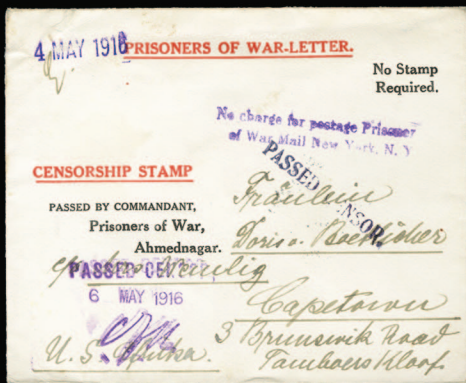 4 MAY 1916
PRISONERS OF WAR-LETTER.
No Stamp
Required.
No charge for postage Prisoner
of War Mail New York, N. Y
PASSED CENSOR.
CENSORSHIP STAMP
PASSED BY COMMANDANT,
Prisoners of War,
Ahmednagar.
Fräulein
Boettcher
PASSED CENSOR
6 MAY 1916
Capetown
3 Brunswik Road
Tamboers Kloof.
U. S. Afrika.